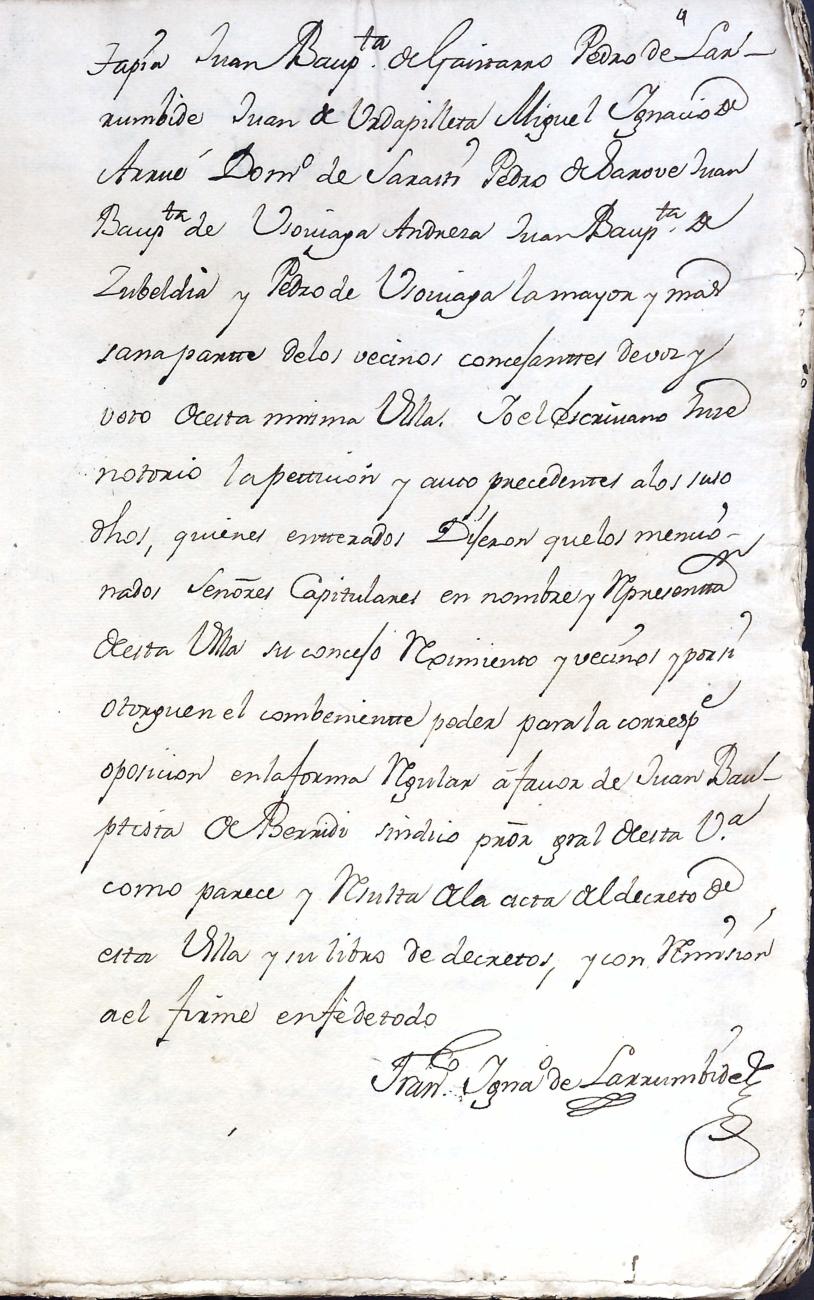 4
Tapia Juan Baup.ta de Gaiztarro Pedro de Lar-
rumbide Juan de Urdapilleta Miguel Ignacio de
Arrue Dom.o de Sarasti Pedro de Juan
Baup.ta de Usoviaga Andreza Juan Baup.ta de
Zubeldia y Pedro de Usoviaga la mayor y mas
sana partte de los vecinos concejanttes de voz y
voto de esta misma Villa. Yo el Escrivano hize
notorio la pettición y auto precedentes a los suso
dhos, quienes entterados Dijeron que los mencio-
nados Señores Capitulares en nombre y Representt.on
de esta Villa su concejo Reximiento y vecinos y por si
otorguen el combenientte poder para la corresp.e
oposicion en la forma Regular á favor de Juan Bau-
ptista de Berridi sindico pror gral de esta V.a
como parece y Resulta de la acta del decreto de
esta Villa y su libro de decretos, y con Remisión
a el firme en fe de todo
Fran.co Igna.o de Larrumbide